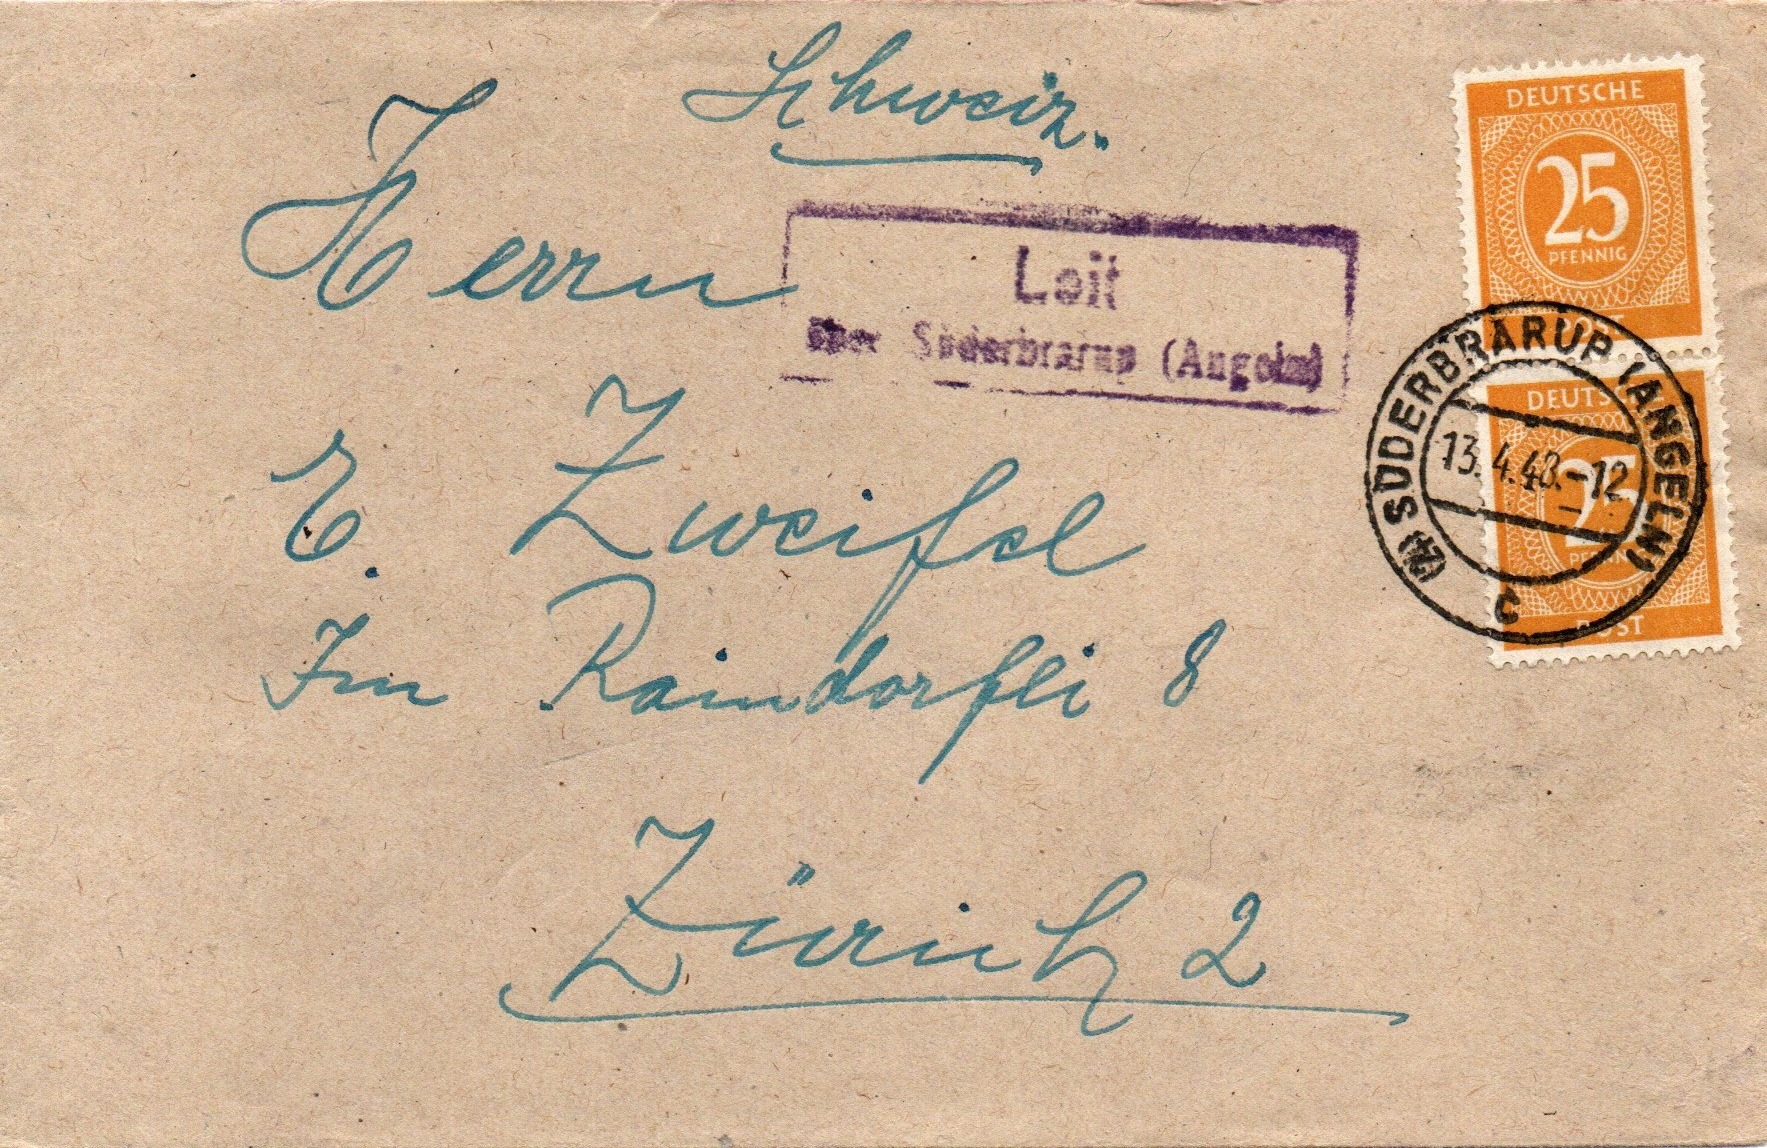 Schweiz.
Herrn
E. Zweifel
Im Raindörfli 8
Zürich 2
Loit
über Süderbrarup (Angeln)
DEUTSCHE
25
PFENNIG
POST
DEUTSCHE
25
PFENNIG
POST
(24) SÜDERBRARUP (ANGELN)
13.4.48.-12
c